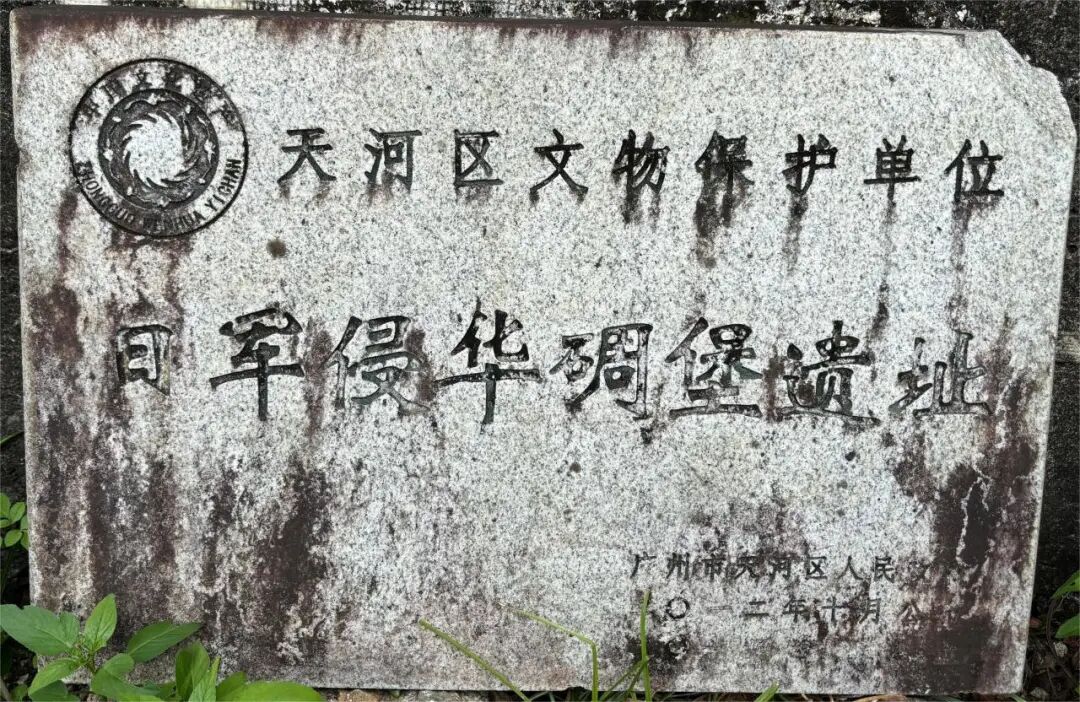 中国文化遗产
ZHONGGUO WENHUA YICHAN
天河区文物保护单位
日军侵华碉堡遗址
广州市天河区人民
〇一二年十月八